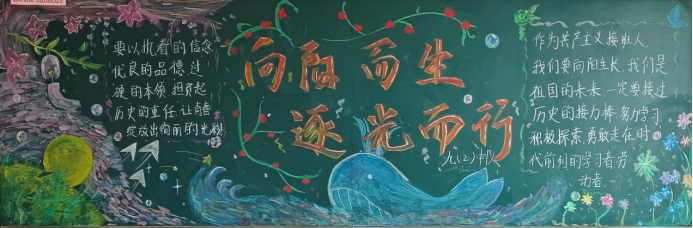 要以执着的信念
优良的品德,过
硬的本领,担负起
历史的重任,让青春
绽放出绚丽的光彩
向阳而生
逐光而行
九(2)中队
作为共产主义接班人
我们要向阳生长,我们是
祖国的未来,一定要接过
历史的接力棒,努力学习
积极探索,勇敢走在时
代前列的学习者劳
动者